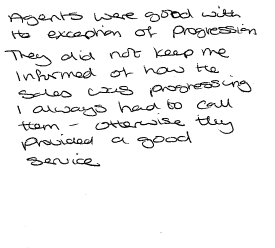 Agents were good with
the exception of progression
They did not keep me
informed of how the
sales was progressing
I always had to call
them - otherwise they
provided a good
service